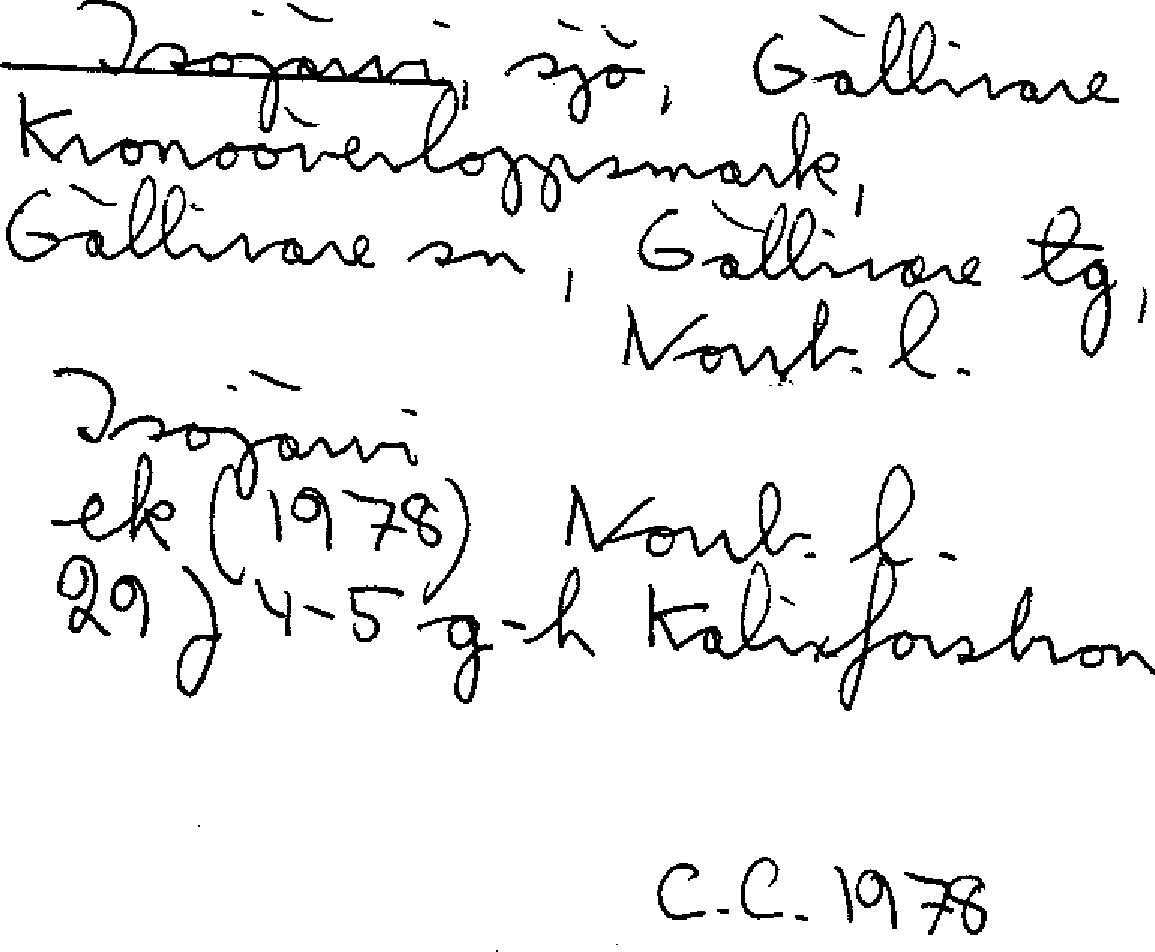 Isojärvi, sjö, Gällivare
Kronoöverloppsmark,
Gällivare sn, Gällivare tg,
Norrb. l.
Isojärvi
ek (1978) Norrb. l.
29 J 4-5 g-h Kalixforsbron
C.C. 1978